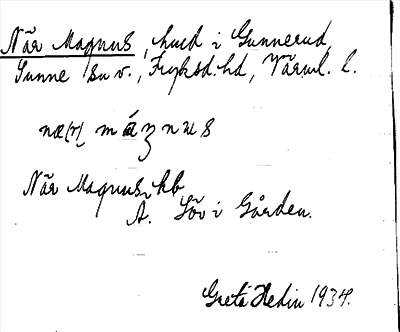 När Magnus, hud i Gunnerud,
Sunne sn v., Fryksd. hd, Värml. l.
næ(r) máznus
När Magnus, hb
A. Löv i Gården.
Greta Hedin 1934.